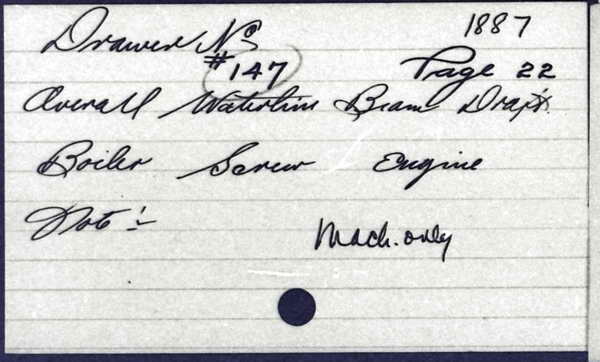 Drawer No 1887
#147 Page 22
Overall Waterline Beam Draft
Boiler Screw Engine
Note:-
Mach. only